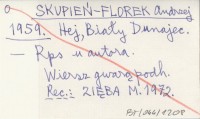 o SKUPIEŃ-FLOREK Andrzej
1959. Hej, Biały Dunajec.
— Rps u autora.
Wiersz gwarą podh.
Rec.: ZIĘBA M. 1972.
BF/046/1208